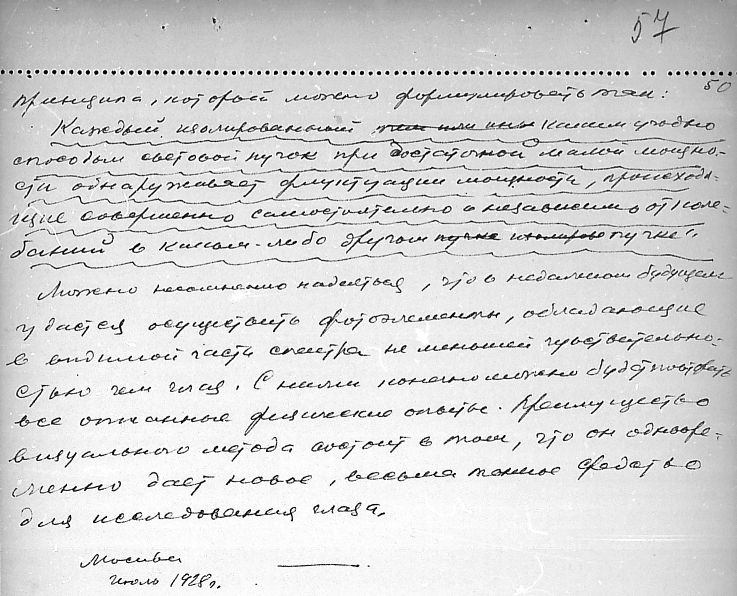 57
50
принципа, который можно формулировать так:
Каждый изолированный тем или иным каким угодно
способом световой пучок при достаточной малой мощно-
сти обнаруживает флуктуации мощности, происходя-
щие совершенно самостоятельно и независимо от коле-
баний в каком-либо другом пучке пучке".
Можно несомненно надеяться, что в недалеком будущем
удастся осуществить фотоэлементы, обладающие
в видимой части спектра не меньшей чувствительно-
стью чем глаз. С ними конечно можно будет поставить
все описанные физические опыты. Преимущество
визуального метода состоит в том, что он одновре-
менно дает новое, весьма тонкое средство
для исследования глаза.
Москва
Июль 1928г.